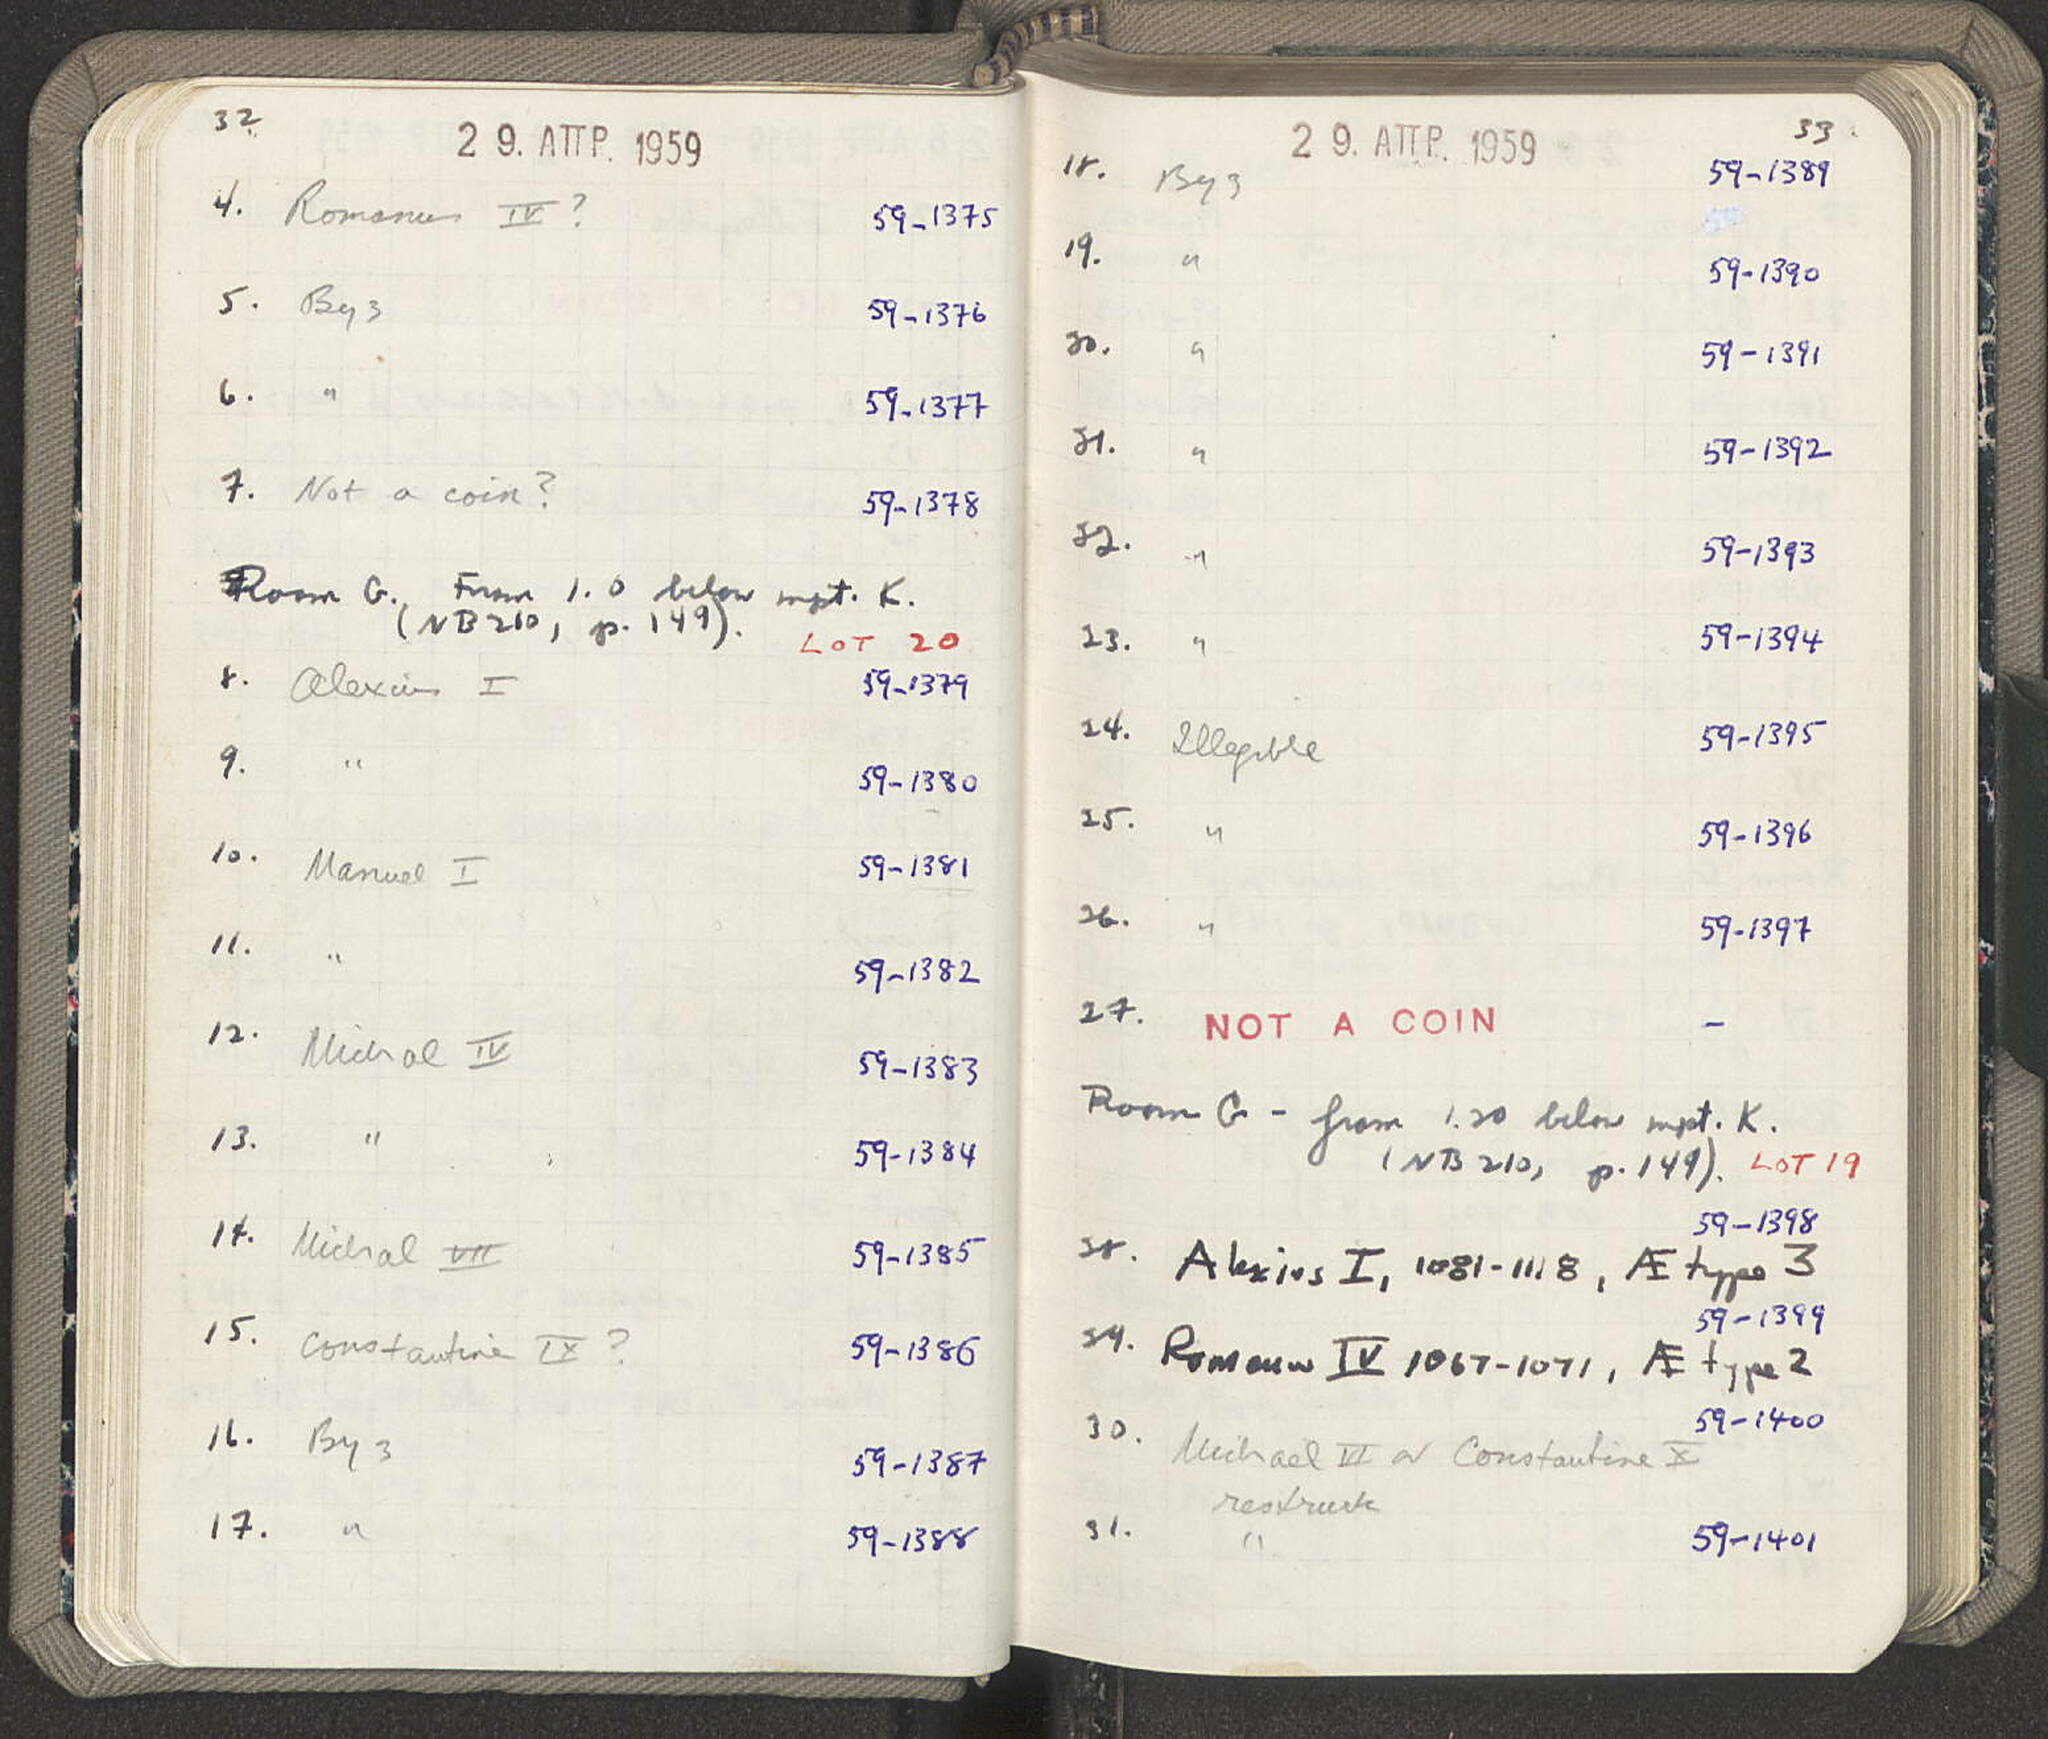 32
29. ΑΠΡ. 1959
4. Romanus IV? 59-1375
5. Byz 59-1376
6. " 59-1377
7. Not a coin? 59-1378
Room G. From 1.0 below mpt. K.
(NB 210, p. 149). LOT 20
8. Alexius I 59-1379
9. " 59-1380
10. Manuel I 59-1381
11. " 59-1382
12. Michael IV 59-1383
13. " 59-1384
14. Michael VII 59-1385
15. Constantine IX? 59-1386
16. Byz 59-1387
17. " 59-1388
33.
29. ΑΠΡ. 1959
18. Byz 59-1389
19. " 59-1390
20. " 59-1391
21. " 59-1392
22. " 59-1393
23. " 59-1394
24. Illegible 59-1395
25. " 59-1396
26. " 59-1397
27. NOT A COIN –
Room G - from 1.20 below mpt. K.
(NB 210, p. 149). LOT 19
59-1398
28. Alexius I, 1081-1118, Æ type 3
59-1399
29. Romanus IV 1067-1071, Æ type 2
59-1400
30. Michael VI or Constantine X
restruck
31. " 59-1401